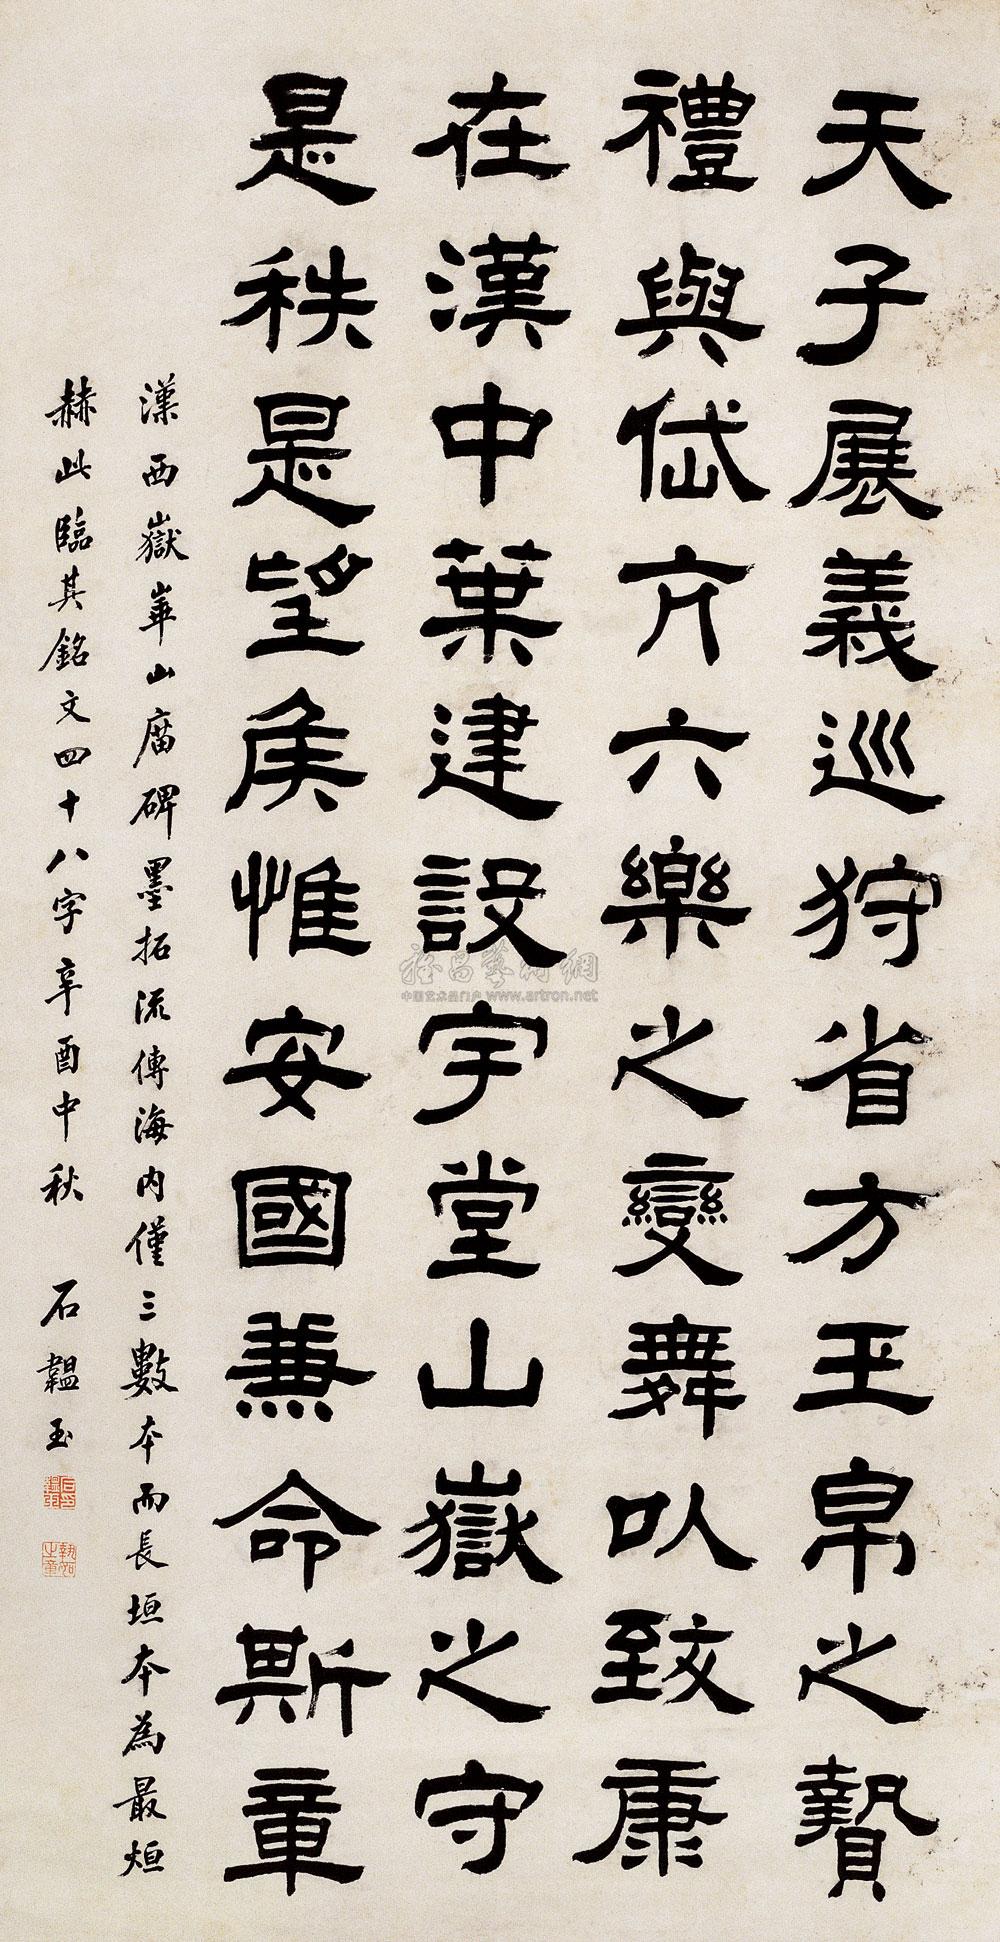 天子展義巡狩省方玉帛之贄
禮與岱亢六樂之變舞以致康
在漢中葉建設宇堂山嶽之守
是秩是望侯惟安國兼命斯章
漢西嶽華山廟碑墨拓流傳海内僅三數本而長垣本為最烜
赫此臨其銘文四十八字辛酉中秋 石韞玉
雅昌藝術網
中国艺术品门户 www.artron.net